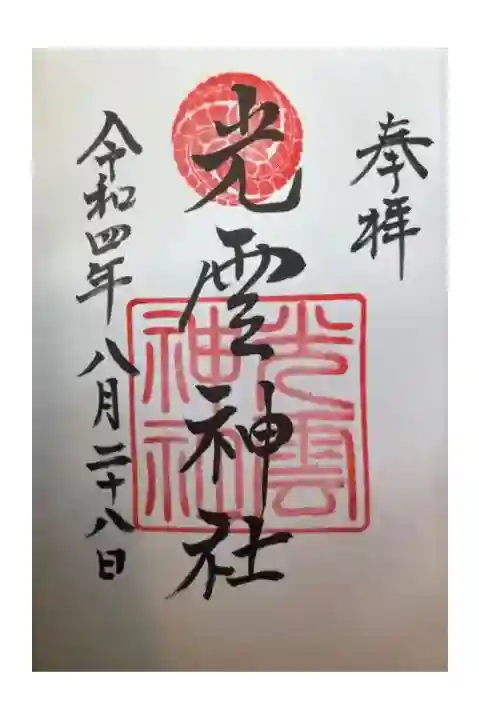 奉拝
光雲神社
光雲
神社
令和四年八月二十八日